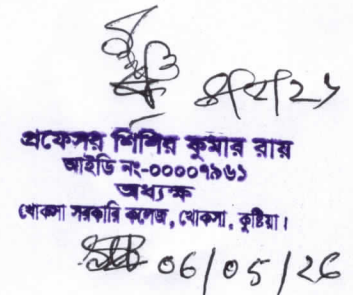 প্রফেসর শিশির কুমার রায়
আইডি নং-০০০০৭৯৬১
অধ্যক্ষ
খোকসা সরকারি কলেজ, খোকসা, কুষ্টিয়া।
06/05/26